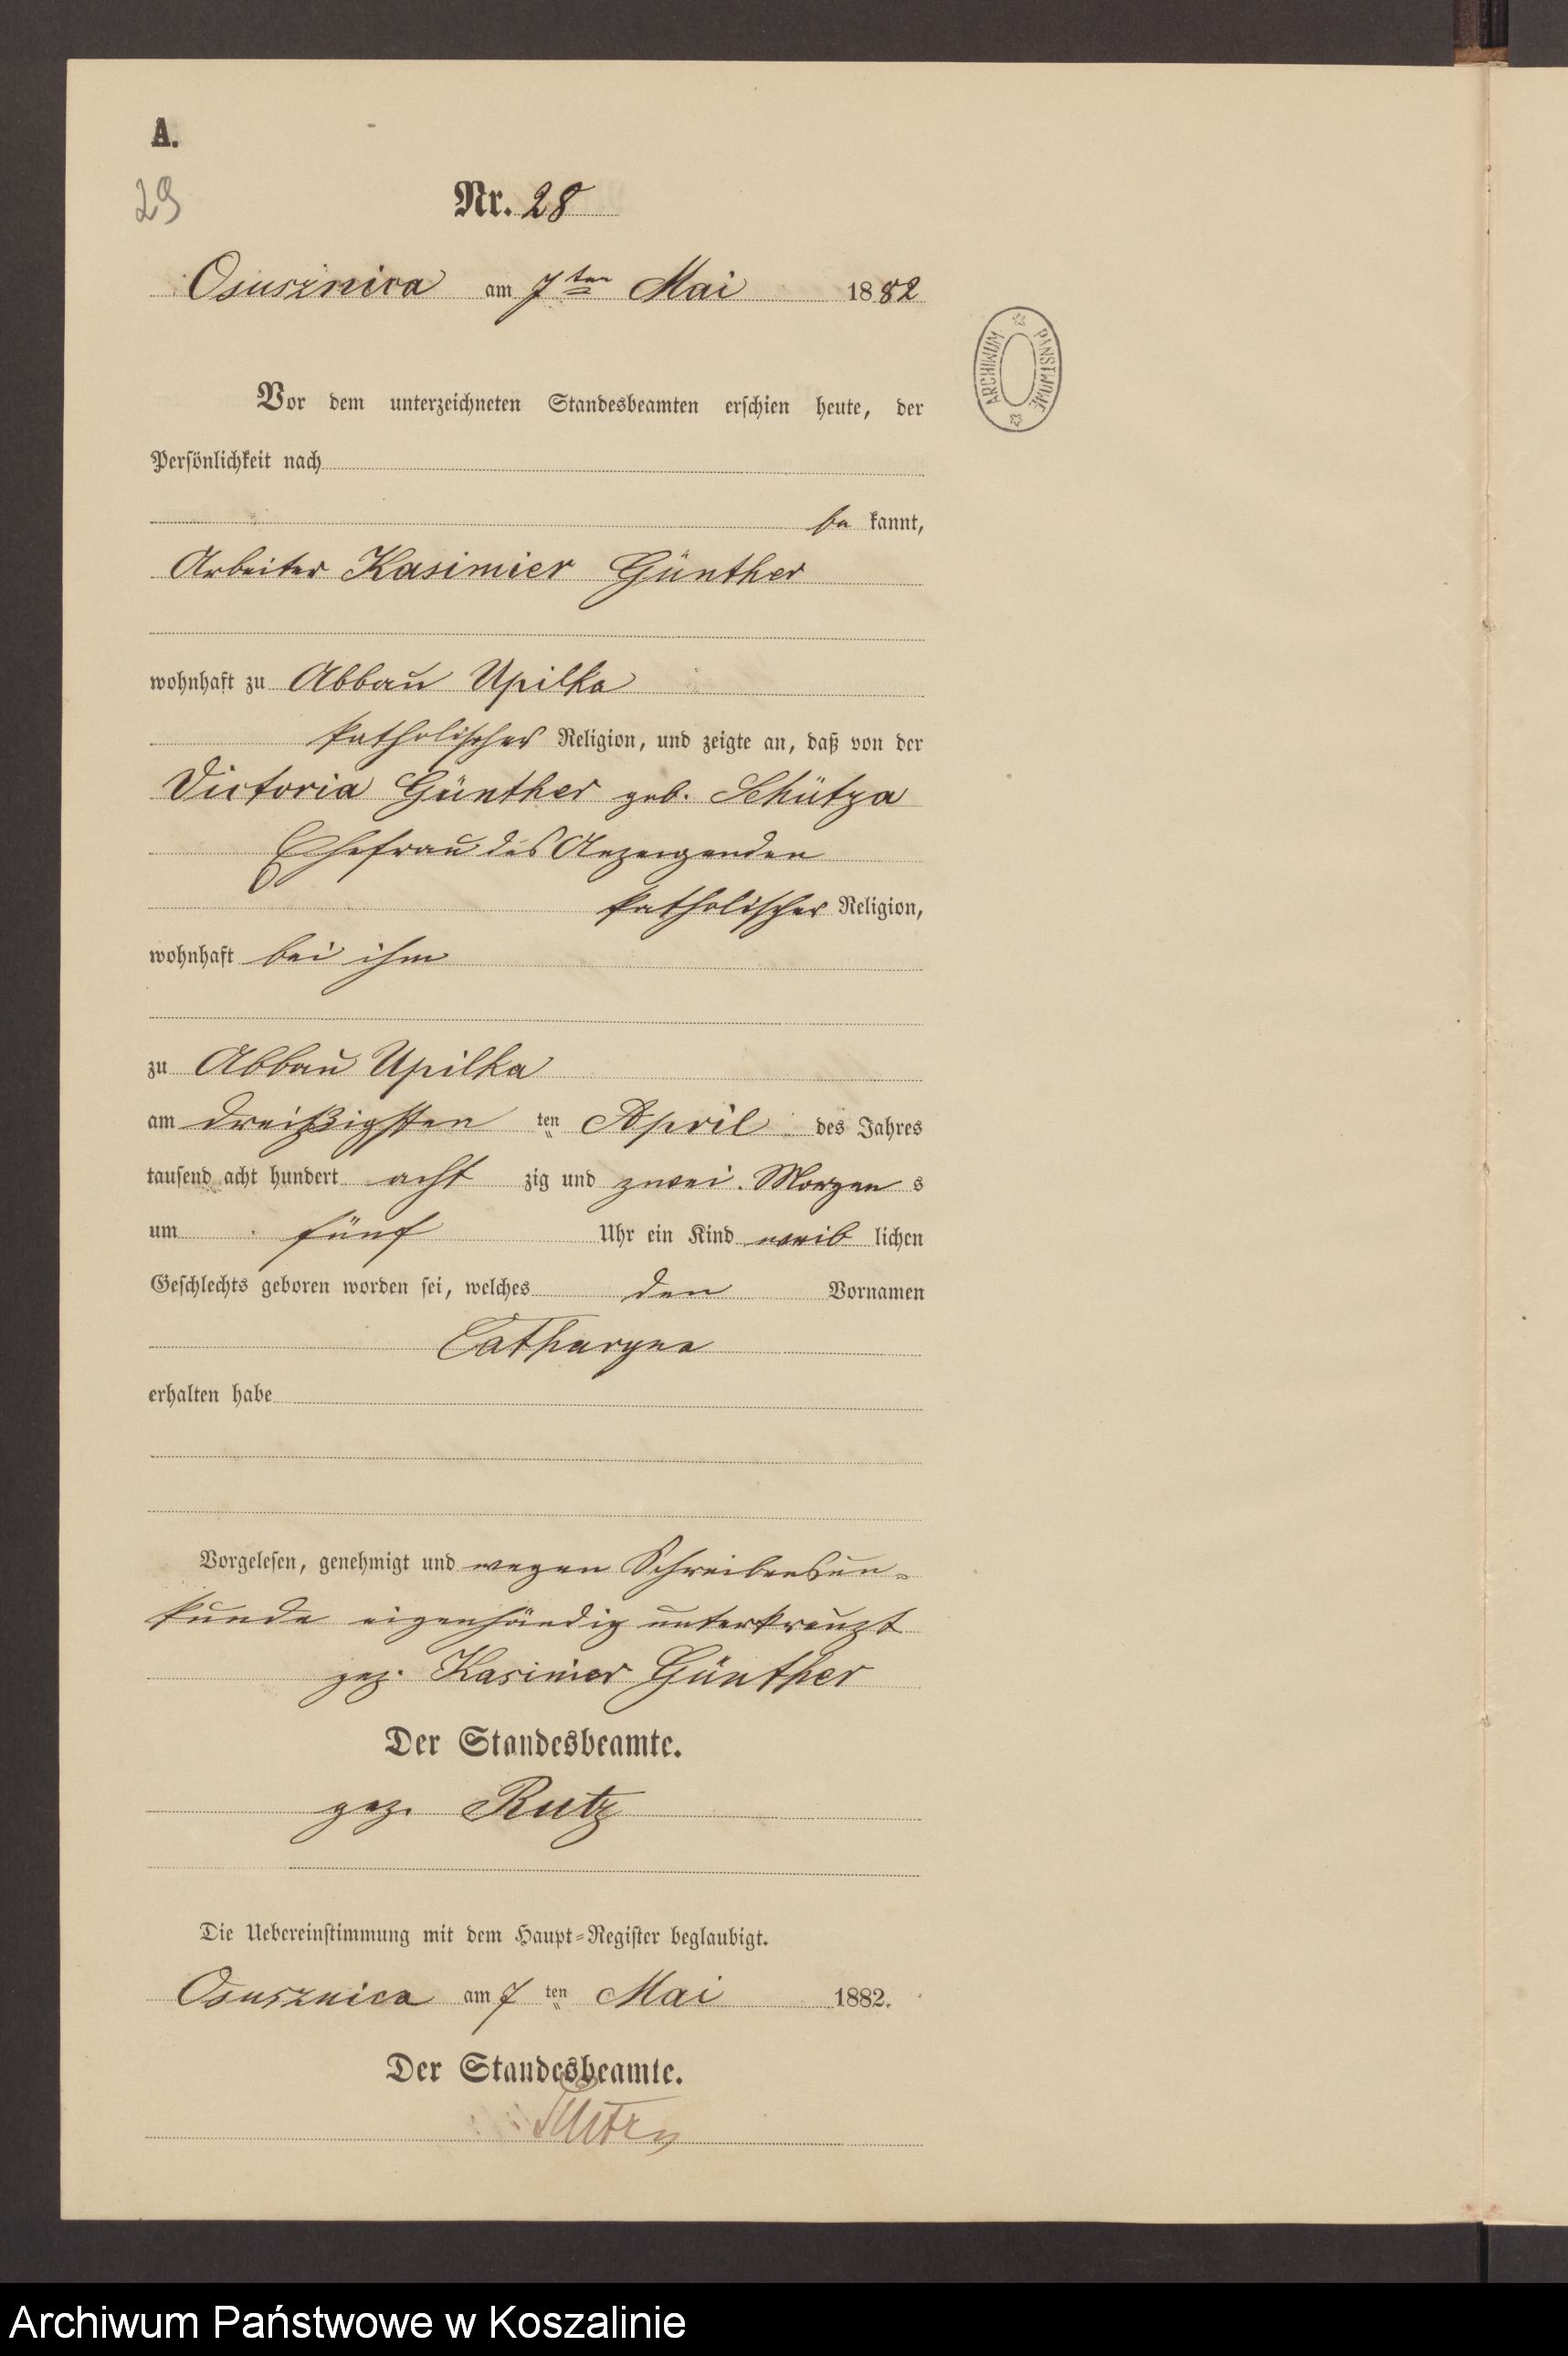 A.
29
Nr. 28
Osusznica am 7ten Mai 1882
ARCHIWUM PAŃSTWOWE
Vor dem unterzeichneten Standesbeamten erschien heute, der
Persönlichkeit nach
be kannt,
Arbeiter Kasimier Günther
wohnhaft zu Abbau Upilka
katholischer Religion, und zeigte an, daß von der
Victoria Günther geb. Schütza
Ehefrau des Anzeigenden
katholischer Religion,
wohnhaft bei ihm
zu Abbau Upilka
am dreißigsten ten April des Jahres
tausend acht hundert acht zig und zwei. Morgen s
um fünf Uhr ein Kind weib lichen
Geschlechts geboren worden sei, welches den Vornamen
Catharyna
erhalten habe
Vorgelesen, genehmigt und wegen Schreibensun-
kunde eigenhändig unterkreuzt
gez. Kasimer Günther
Der Standesbeamte.
gez. Rutz
Die Uebereinstimmung mit dem Haupt-Register beglaubigt.
Osusznica am 7 ten Mai 1882.
Der Standesbeamte.
Archiwum Państwowe w Koszalinie